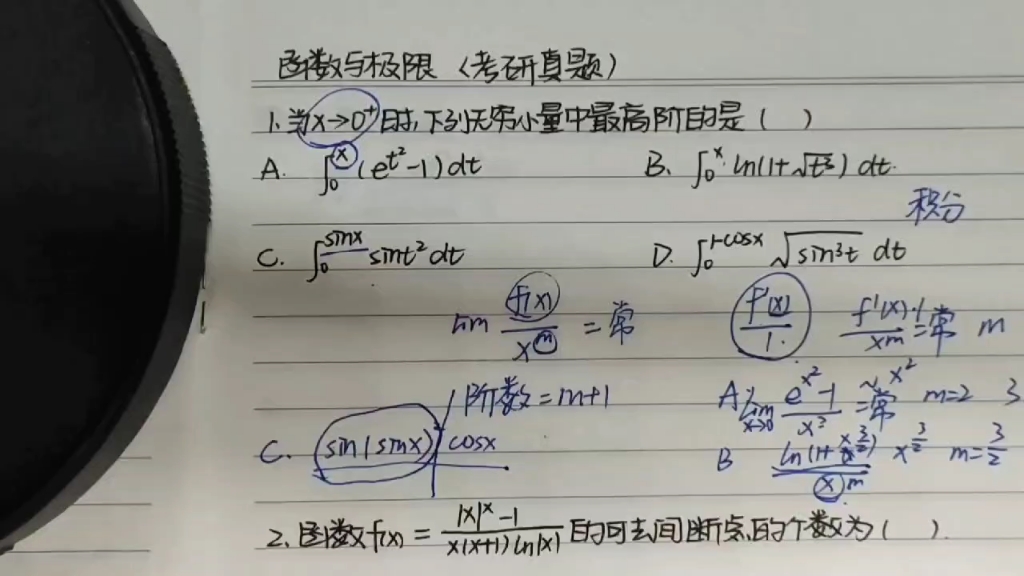 函数与极限（考研真题）
1. 当x→0⁺时,下列无穷小量中最高阶的是（ ）
A. ∫₀ˣ (e^{t²}-1)dt B. ∫₀ˣ ln(1+√t³) dt.
积分
C. ∫₀^{sinx} sint² dt D. ∫₀^{1-cosx} √sin³t dt
lim f(x)/x^m = 常 f'(x)/1 f'(x)·1/xm = 常 m
阶数=m+1 A lim x→0 e^{x²}-1/x² = 常 ~x² m=2 3
C. sin(sinx)² cosx B ln(1+x^{3/2})/(x)^m x^{3/2} m=3/2
2. 函数f(x) = |x|ˣ-1/x(x+1)ln|x| 的可去间断点的个数为（ ）.